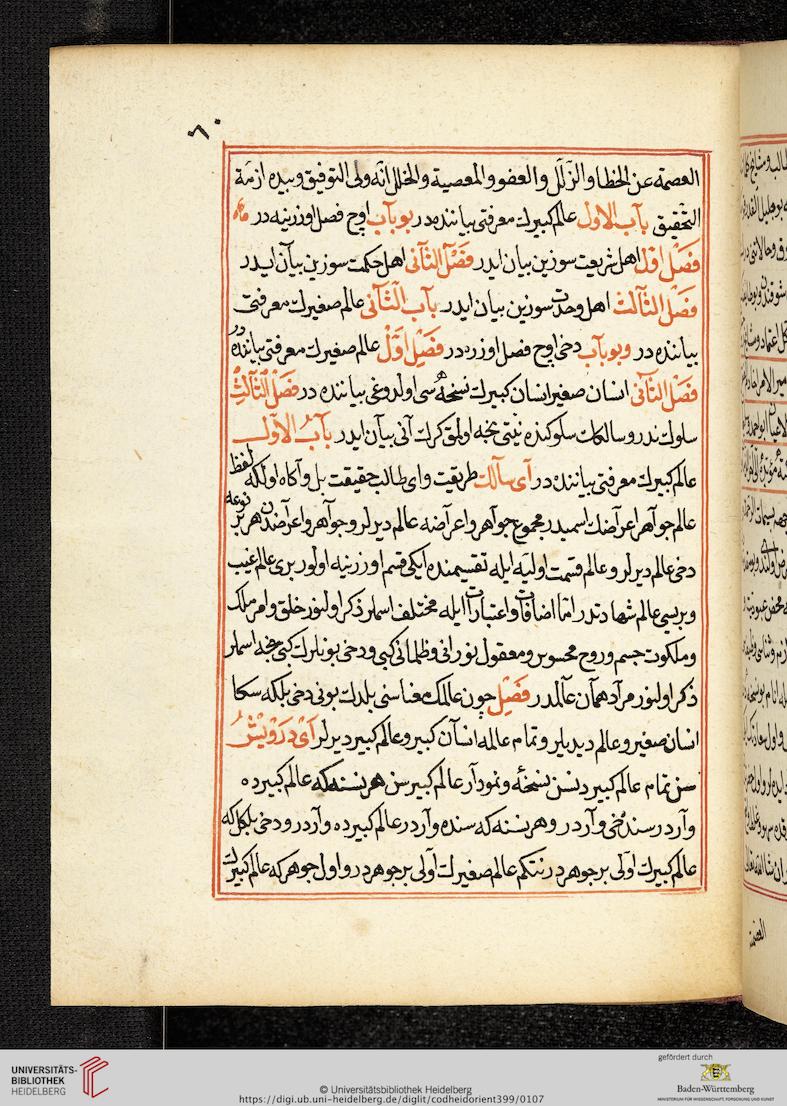 ٦٠
العصمة عن الخطا والزلل والعفو والمعصية والخلل انه ولى التوفيق وبيده ازمة
التحقيق باب الاول عالم كبيرك معرفتى بياننده در بو باب اوچ فصل اوزرينه در
فصل اول اهل شريعت سوزين بيان ايدر فصل الثانى اهل حكمت سوزين بيان ايدر
فصل الثالث اهل وحدت سوزين بيان ايدر باب الثانى عالم صغيرك معرفتى
بياننده در و بو باب دخى اوچ فصل اوزره در فصل اول عالم صغيرك معرفتى بياننده در
فصل الثانى انسان صغير انسان كبيرك نسخه سى اولدوغى بياننده در فصل الثالث
سلوك ندر و سالكك سلوكنده نيتى نجه اولمق كرك آنى بيان ايدر باب الاول
عالم كبيرك معرفتى بياننده در اى سالك طريقت واى طالب حقيقت بل و آكاه اولكه لفظ
عالم جواهر اعراضك اسميدر مجموع جواهر و اعراضه عالم ديرلر و جواهر و اعراضدن هر بر نوعه
دخى عالم ديرلر و عالم قسمت اوليه ايله تقسيمنده ايكى قسم اوزرينه اولور برى عالم غيب
و بريسى عالم شهادتدر اما اضافات و اعتبارات ايله مختلف اسملر ذكر اولنور خلق و امر ملك
و ملكوت جسم و روح محسوس و معقول نورانى و ظلمانى كبى و دخى بونلرك كبى نجه اسملر
ذكر اولنور مراد همان عالمدر فصل چون عالمك معناسنى بلدك بونى دخى بلكه سكا
انسان صغير و عالم ديديلر و تمام عالمه انسان كبير و عالم كبير ديرلر اى درويش
سن تمام عالم كبير دنسن نسخه و نمودار عالم كبير سن هر نسنه كه عالم كبيرده
واردر سنده دخى واردر و هر نسنه كه سنده واردر عالم كبيرده واردر و دخى بلكل كه
عالم كبيرك اولى بر جوهردر نتكم عالم صغيرك اولى بر جوهردر و اول جوهر كه عالم كبيرك
UNIVERSITÄTS-
BIBLIOTHEK
HEIDELBERG
© Universitätsbibliothek Heidelberg
https://digi.ub.uni-heidelberg.de/diglit/codheidorient399/0107
gefördert durch
Baden-Württemberg
MINISTERIUM FÜR WISSENSCHAFT, FORSCHUNG UND KUNST